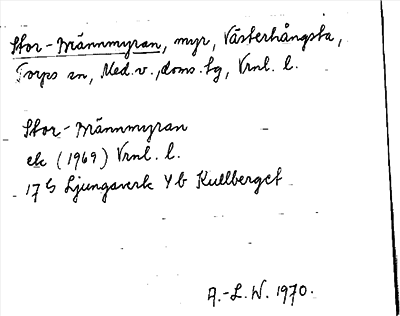 Stor-Männmyran, myr, Västerhångsta,
Torps sn, Med. v., doms. tg, Vrnl. l.
Stor-Männmyran
ek (1969) Vrnl. l.
17 G Ljungaverk Y b Kullberget
A.-L. W. 1970.